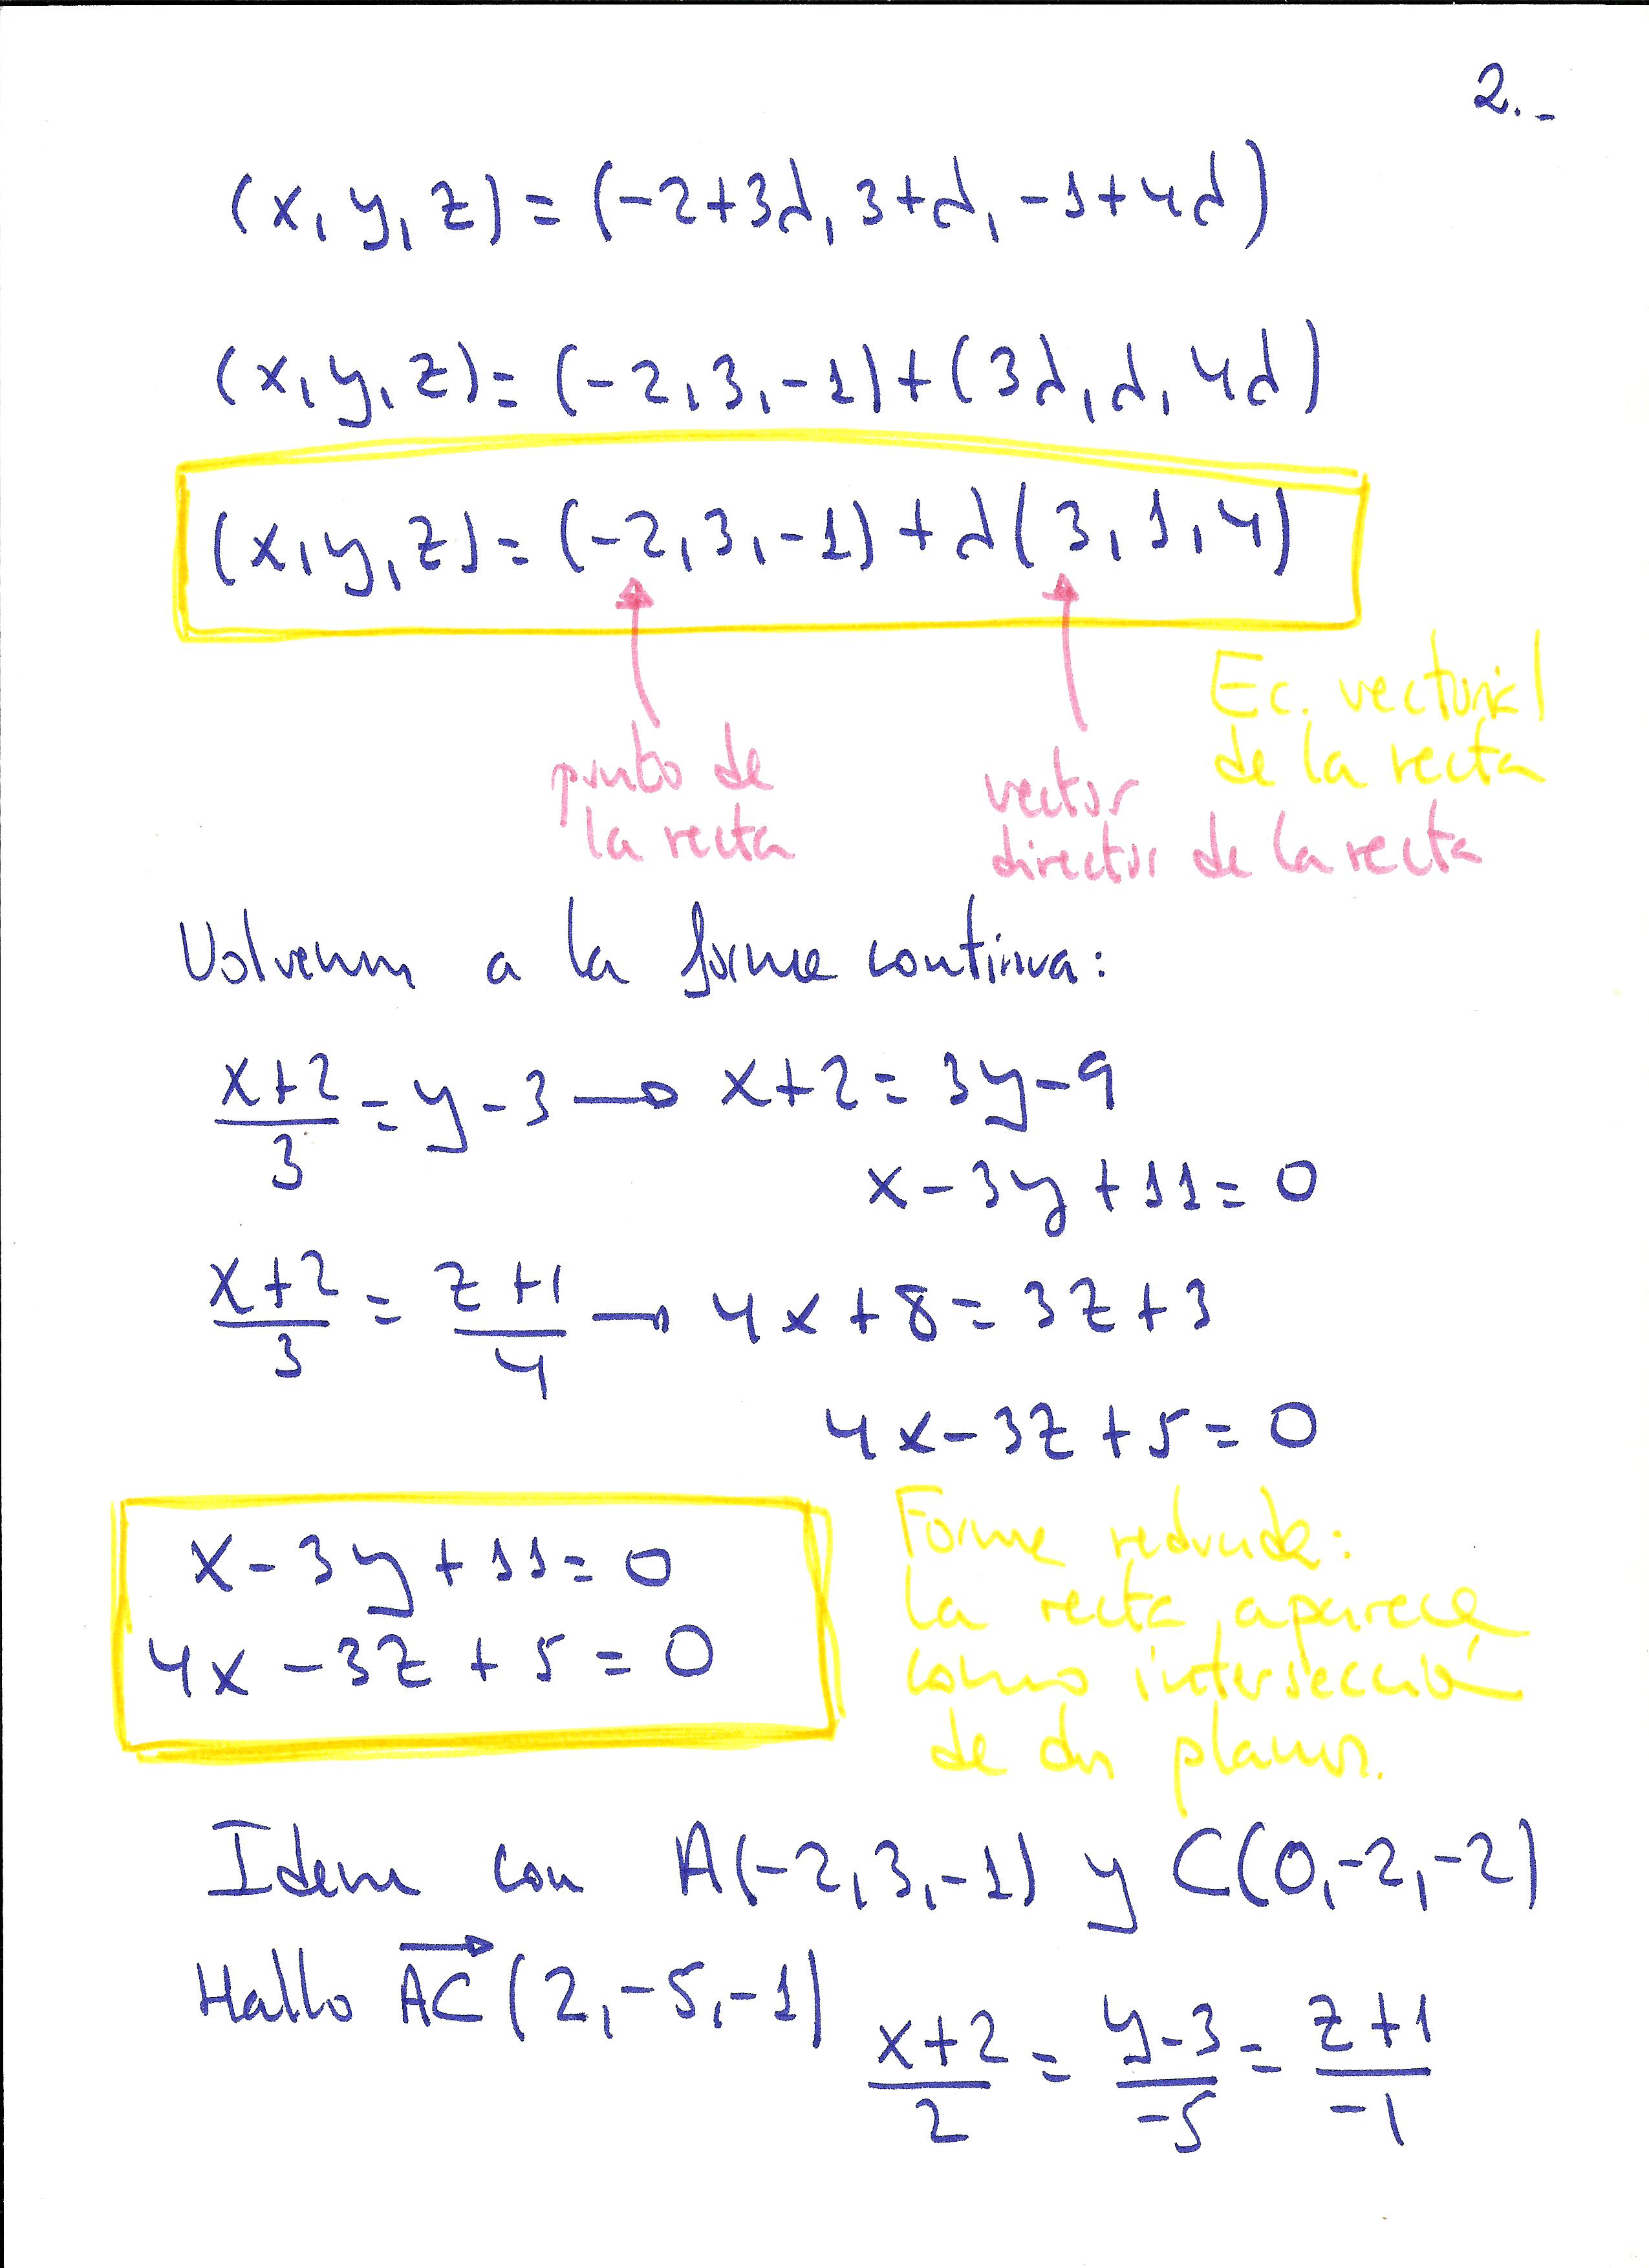 2.-
(x, y, z) = (-2+3λ, 3+λ, -1+4λ)
(x, y, z) = (-2, 3, -1) + (3λ, λ, 4λ)
(x, y, z) = (-2, 3, -1) + λ(3, 1, 4)
Ec. vectorial
de la recta
punto de
la recta
vector
director de la recta
Volvemos a la forma continua:
(x+2)/3 = y-3 → x+2 = 3y-9
x-3y+11=0
(x+2)/3 = (z+1)/4 → 4x+8 = 3z+3
4x-3z+5=0
x-3y+11=0
4x-3z+5=0
Forma reducida:
la recta aparece
como intersección
de dos planos.
Idem con A(-2,3,-1) y C(0,-2,-2)
Hallo AC⃗ (2,-5,-1) (x+2)/2 = (y-3)/-5 = (z+1)/-1